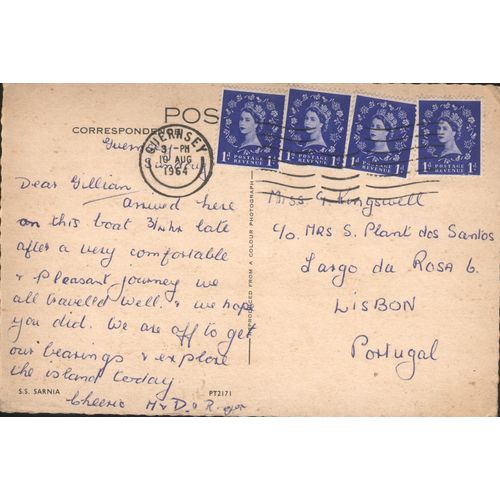 POS
CORRESPONDENCE
Guern
Sunday
GUERNSEY
3 - PM
10 AUG
1964
1D POSTAGE REVENUE 1D
1D POSTAGE REVENUE 1D
1D POSTAGE REVENUE 1D
1D POSTAGE REVENUE 1D
Dear Gillian
arrived here
on this boat 3/4 hr late
after a very comfortable
& Pleasant journey we
all travelled well & we hope
you did. We are off to get
our bearings & explore
the island today
Cheerio M & D & R
S.S. SARNIA
PT2171
REPRODUCED FROM A COLOUR PHOTOGRAPH
Miss G Kingswell
c/o MRS S. Plant dos Santos
Largo da ROSA 6.
LISBON
Portugal